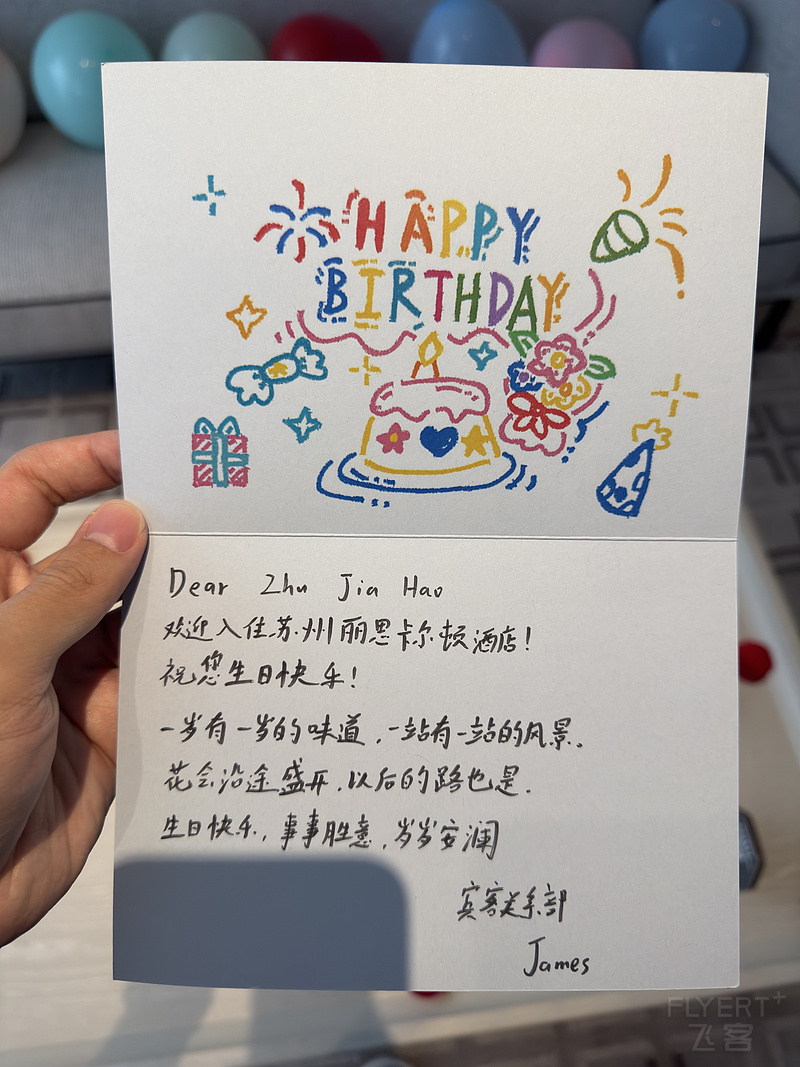 HAPPY
BIRTHDAY
Dear Zhu Jia Hao
欢迎入住苏州丽思卡尔顿酒店!
祝您生日快乐!
一岁有一岁的味道,一站有一站的风景。
花会沿途盛开,以后的路也是.
生日快乐,事事胜意,岁岁安澜
宾客关系部
James
FLYERT+
飞客